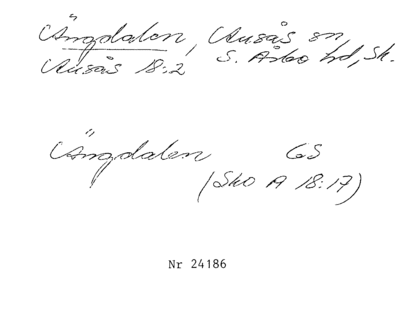 Ängdalen, Ausås sn,
Ausås 18:2 S. Åsbo hd, Sk.
Ängdalen GS
(Sko A 18:17)
Nr 24186